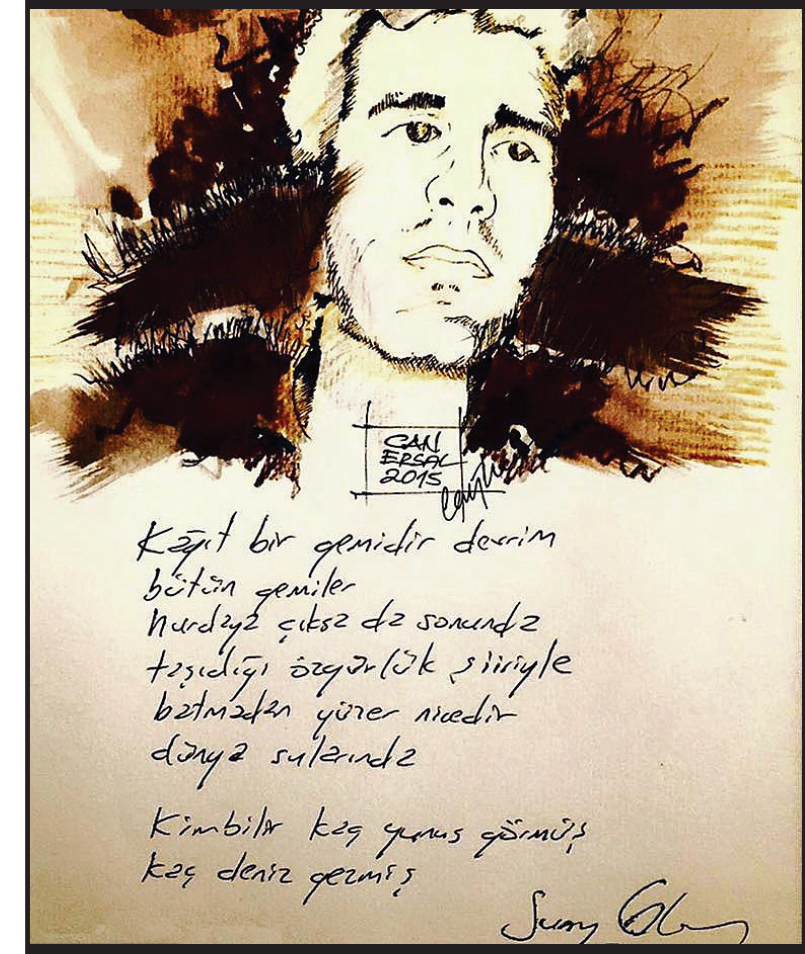 CAN
ERSAL
2015
Kağıt bir gemidir devrim
bütün gemiler
hurdaya çıksa da sonunda
taşıdığı özgürlük şiiriyle
batmadan yüzer nicedir
dünya sularında
Kimbilir kaç yunus görmüş
kaç deniz gezmiş
Sunay